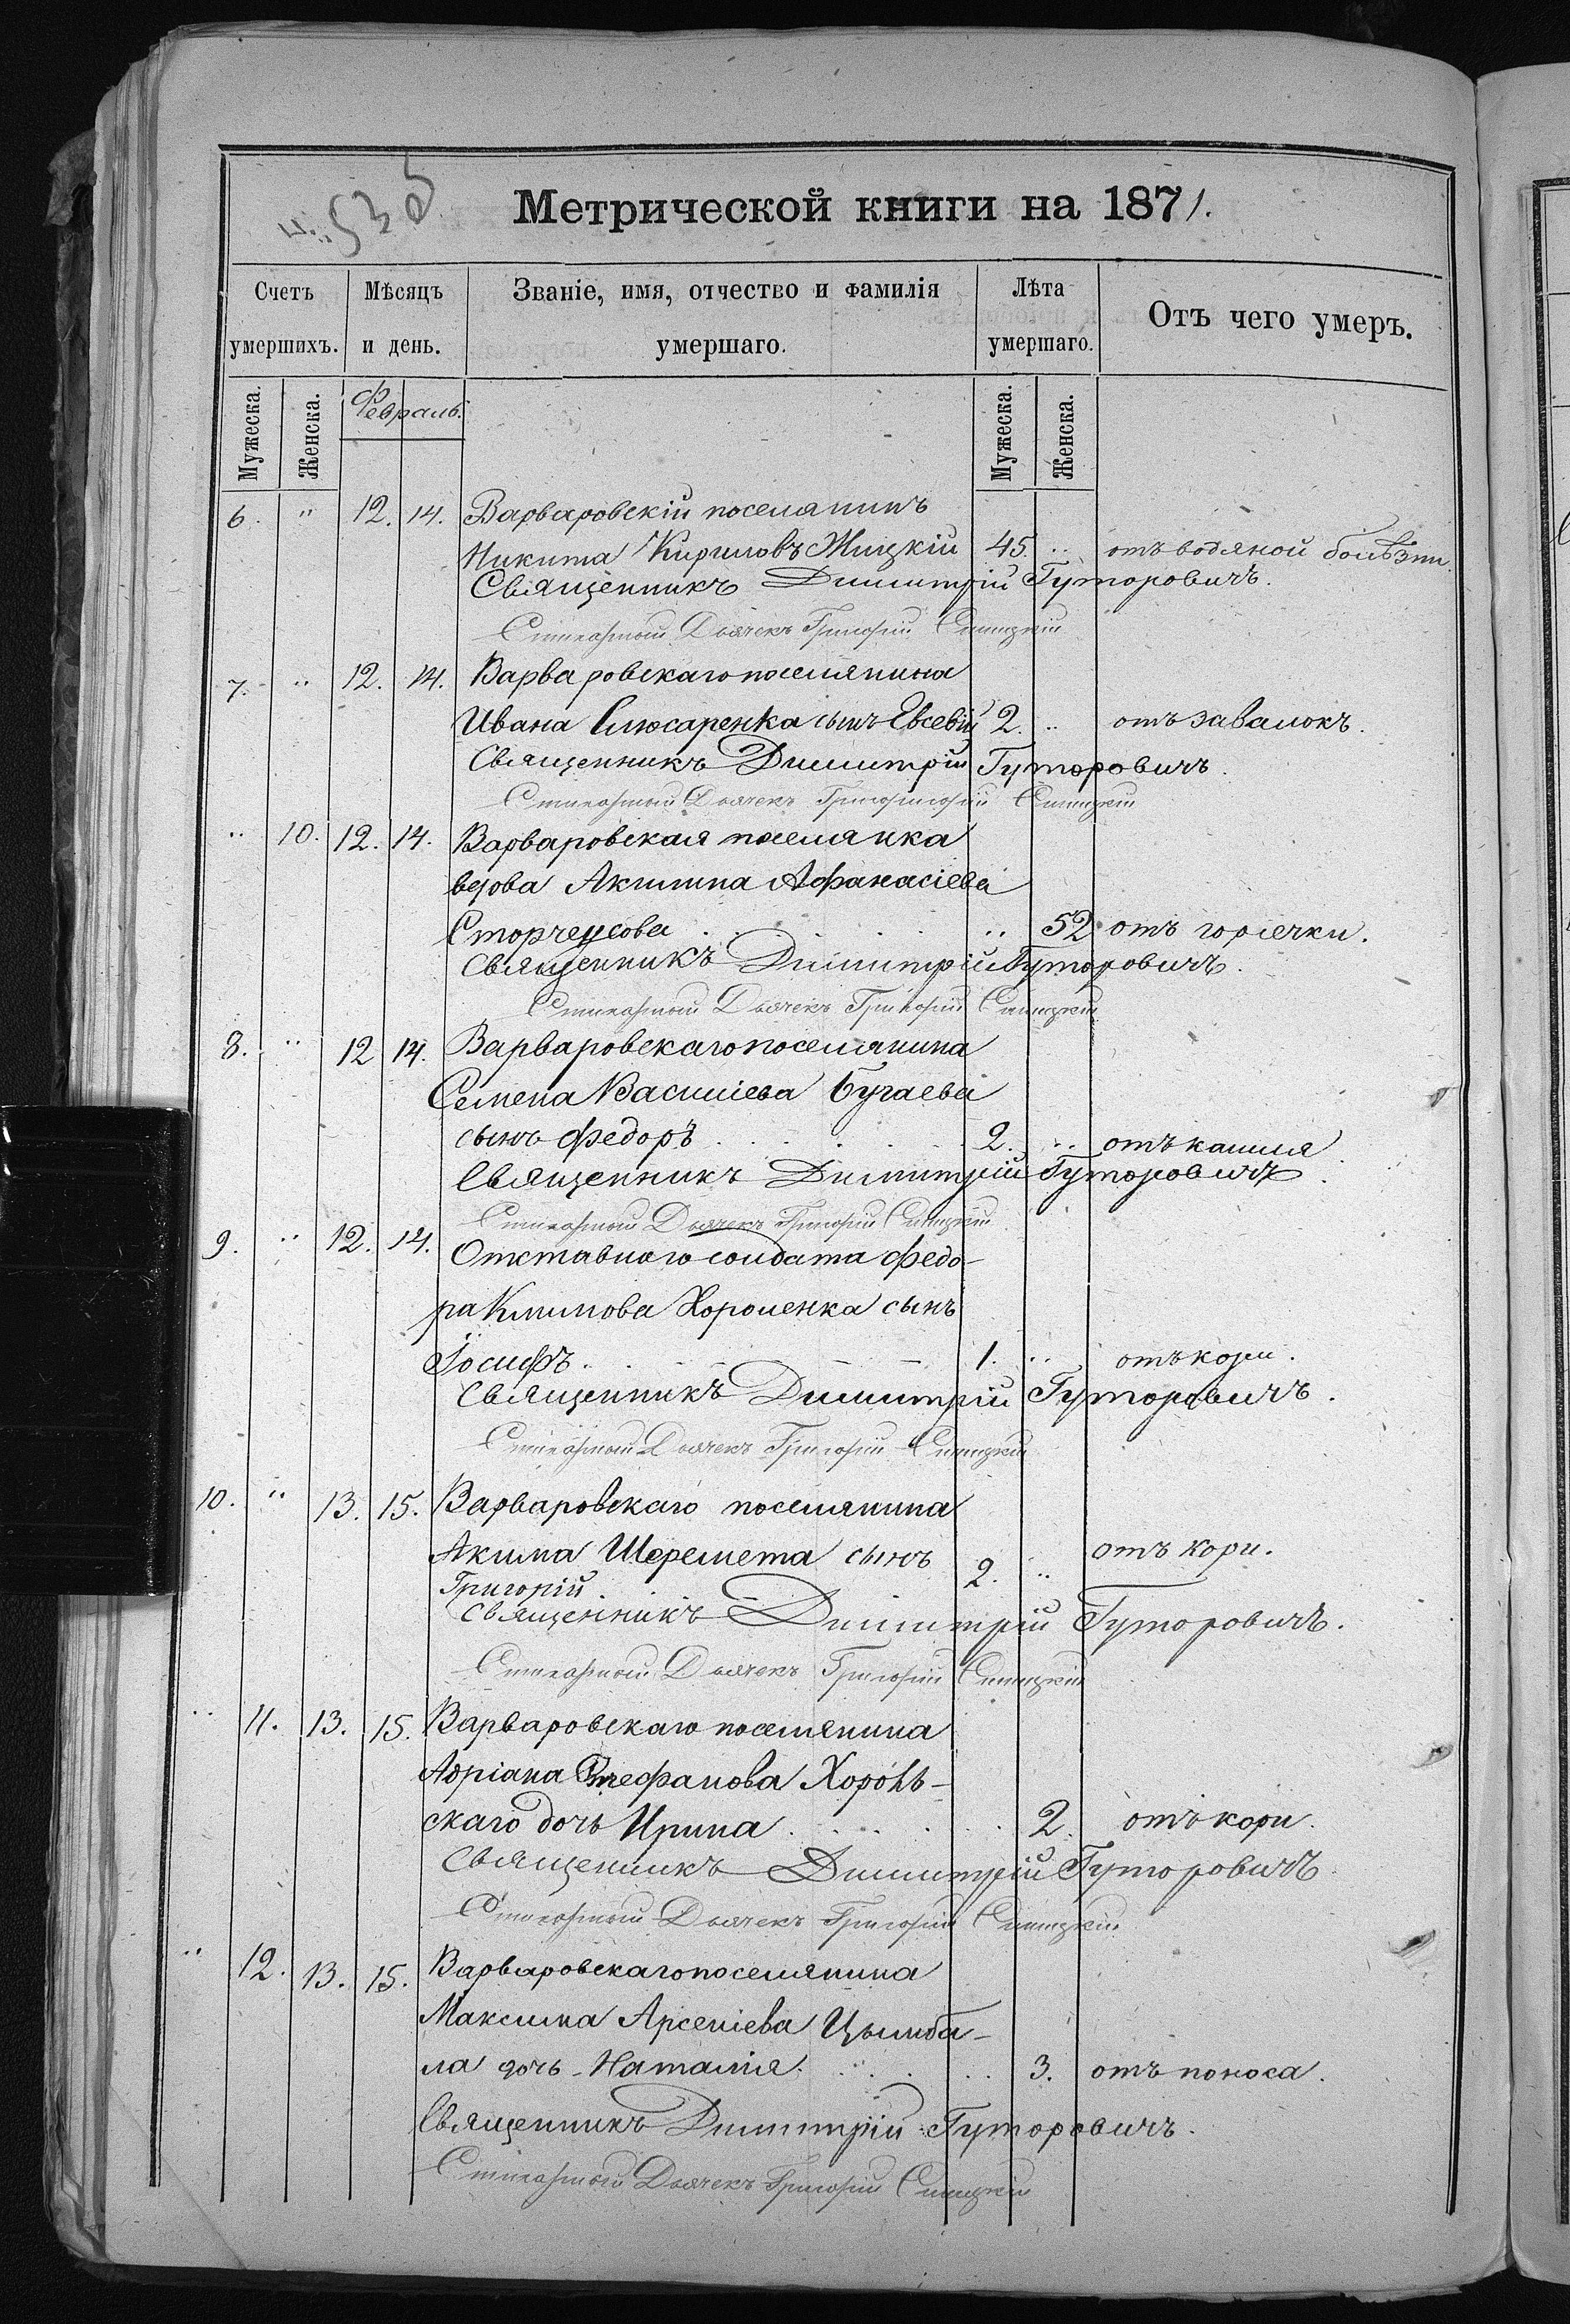 Метрической книги на 1871.
Счетъ умершихъ. Мѣсяцъ и день. Званіе, имя, отчество и фамилія умершаго. Лѣта умершаго. Отъ чего умеръ.
Мужеска. Женска. Февраль. Мужеска. Женска.
6. " 12. 14. Варваровскій поселянинъ
Никита Кириловъ Жицкій 45. " отъ водяной болѣзни.
Священникъ Димитрій Гуторовичъ.
Стихарный Дьячекъ Григорій
7. " 12. 14. Варваровскаго поселянина
Ивана Слюсаренка сынъ Евсевій 2. " отъ завалокъ.
Священникъ Димитрій Гуторовичъ.
Стихарный Дьячекъ
" 10. 12. 14. Варваровская поселянка
вдова Акилина Афанасіева
Сторчеусова " 52 отъ горячки.
Священникъ Димитрій Гуторовичъ.
Стихарный Дьячекъ Григорій
8. " 12 14. Варваровскаго поселянина
Семена Василіева Бугаева
сынъ Федоръ 2. " отъ кашля
Священникъ Димитрій Гуторовичъ.
Стихарный Дьячекъ Григорій
9. " 12. 14. Отставного солдата Федо-
ра Климова Хороленка сынъ
Іосифъ 1. " отъ кори.
Священникъ Димитрій Гуторовичъ.
Стихарный Дьячекъ Григорій
10. " 13. 15. Варваровскаго поселянина
Акима Шеремета сынъ 2. " отъ кори.
Григорій
Священникъ Димитрій Гуторовичъ.
Стихарный Дьячекъ Григорій
" 11. 13. 15. Варваровскаго поселянина
Адріана Стефанова Хороль-
скаго дочь Ирина 2. отъ кори.
Священникъ Димитрій Гуторовичъ
Стихарный Дьячекъ Григорій
" 12. 13. 15. Варваровскаго поселянина
Максима Арсеніева Цымба-
ла дочь Наталія 3. отъ поноса.
Священникъ Димитрій Гуторовичъ.
Стихарный Дьячекъ Григорій